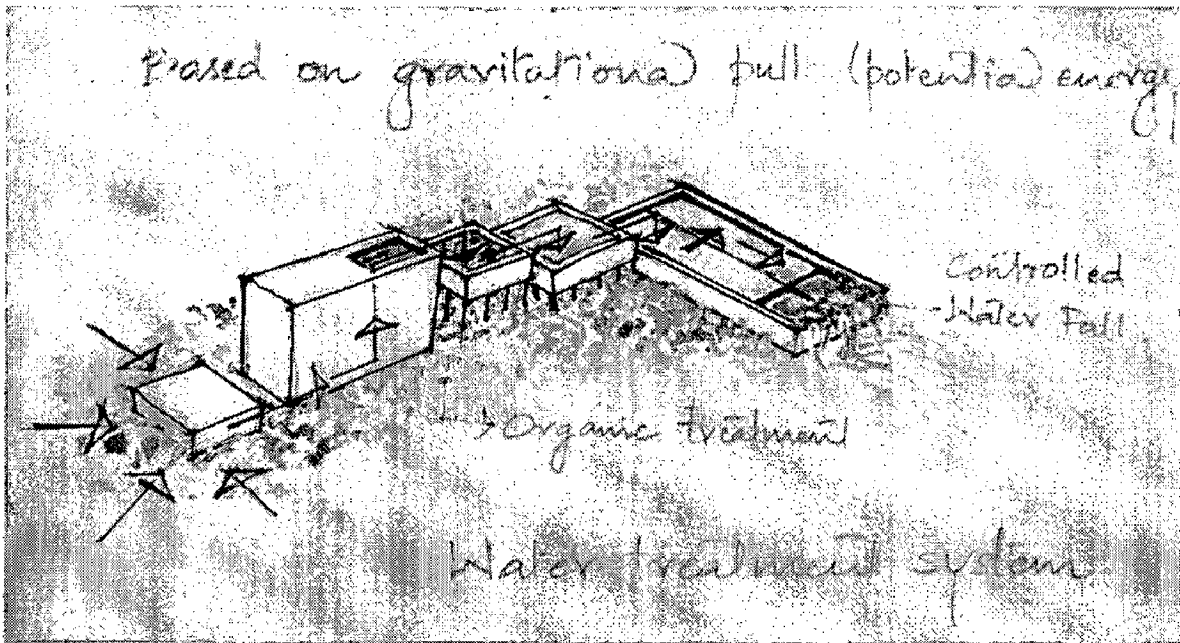 Based on gravitational pull (potential energy
Controlled
Water Fall
Organic treatment
Water treatment system